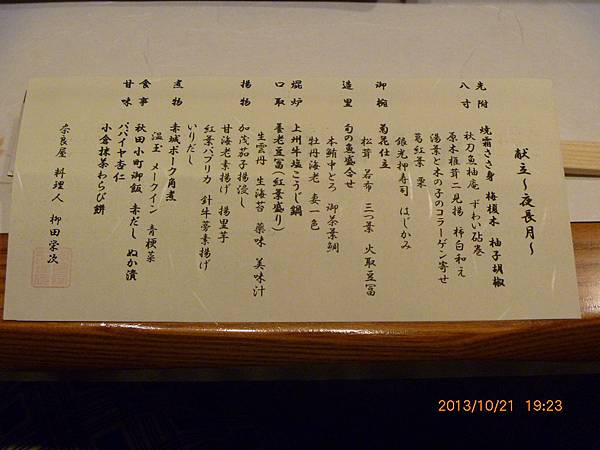 献立～夜長月～
先附 焼霜ささ身 梅榎木 柚子胡椒
八寸 秋刀魚柚庵 ずわい砧巻
原木椎茸二見揚 柿白和え
湯葉と木の子のコラーゲン寄せ
葛紅葉 栗
銀光押寿司 はじかみ
御椀 菊花仕立
松茸 若布 三つ葉 火取豆冨
造里 旬の魚盛合せ
本鮪中とろ 御茶葉鯛
牡丹海老 妻一色
焜炉 上州牛塩こうじ鍋
口取 養老豆冨(紅葉盛り)
生雲丹 生海苔 薬味 美味汁
揚物 加茂茄子揚浸し
甘海老素揚げ 揚里芋
紅葉パプリカ 針牛蒡素揚げ
いりだし
煮物 赤城ポーク角煮
温玉 メークイン 青梗菜
食事 秋田小町御飯 赤だし ぬか漬
甘味 パパイヤ杏仁
小倉抹茶わらび餅
奈良屋 料理人 柳田栄次
2013/10/21 19:23